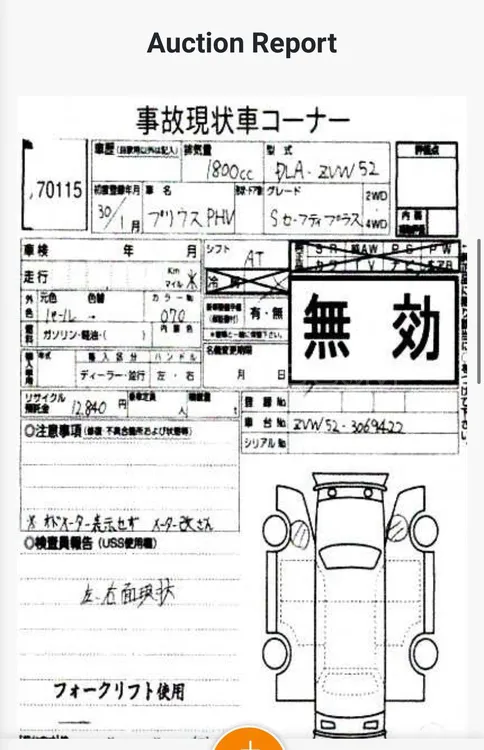 Auction Report
事故現状車コーナー
車歴 (自家用以外は記入) 排気量 型式 評価点
70115 1800cc DLA-ZVW52
初度登録年月 車名 グレード 2WD
30/1月 プリウスPHV Sセーフティプラス 4WD
内装
車検 年 月 シフト AT
走行 Km マイル ※ 冷房
外色 元色 色替 カラーNo. 無効
パール → 070 有・無
燃料 ガソリン・軽油・( ) 内装色
名義変更期限
輸入車用 年式 輸入区分 ハンドル
ディーラー・並行 左・右 月 日
リサイクル預託金 12,840円 乗車定員 人 積載量 t 登録No.
車台No. ZVW52-3069422
◎注意事項 (修復・不具合箇所および状態等) シリアルNo.
※オドメーター表示せず メーター改ざん
◎検査員報告 (USS使用欄)
左.右面現状
フォークリフト使用